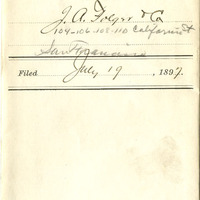 J. A. Folger & Co
104-106-108-110 California St
San Francisco
Filed July 19, 1897.